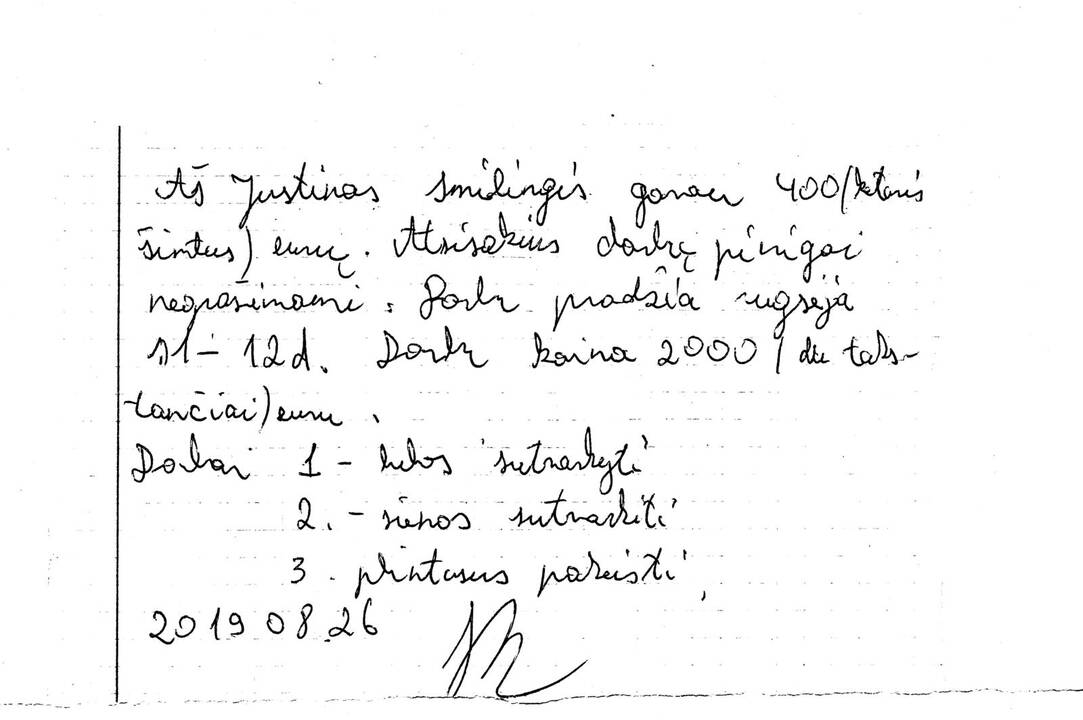 Aš Justinas Smilingis gavau 400 (keturis
šimtus) eurų. Atsisakius darbų pinigai
negrąžinami. Darbų pradžia rugsėjo
11-12d. Darbų kaina 2000 (du tūks-
tančiai) eurų.
Darbai 1 - lubos sutvarkyti
2. - sienos sutvarkiti
3. plintusus pakeisti,
2019 08.26